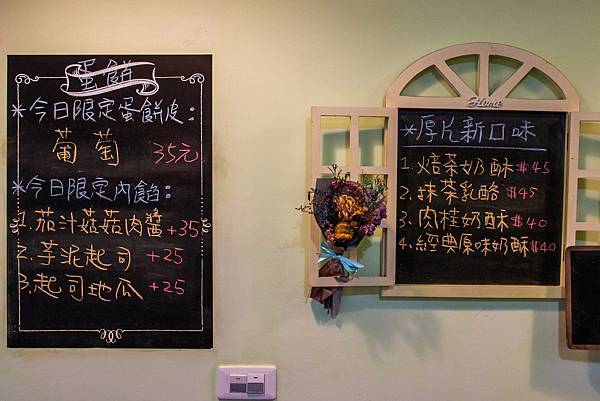 蛋餅
*今日限定蛋餅皮:
葡萄 35元
*今日限定內餡:
1.茄汁菇菇肉醬+35
2.芋泥起司 +25
3.起司地瓜 +25
Home
*厚片新口味
1.焙茶奶酥$45
2.抹茶乳酪$45
3.肉桂奶酥$40
4.經典原味奶酥$40